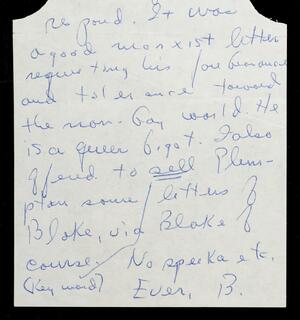 respond. It was
a good Marxist letter
requesting his forbearance
and tolerance toward
the non-Gay world. He
is a queer bigot. I also
offered to sell Plim-
pton some letters of
Blake, via Blake of
course. No speeka etc.
(Key word) Ever, B.